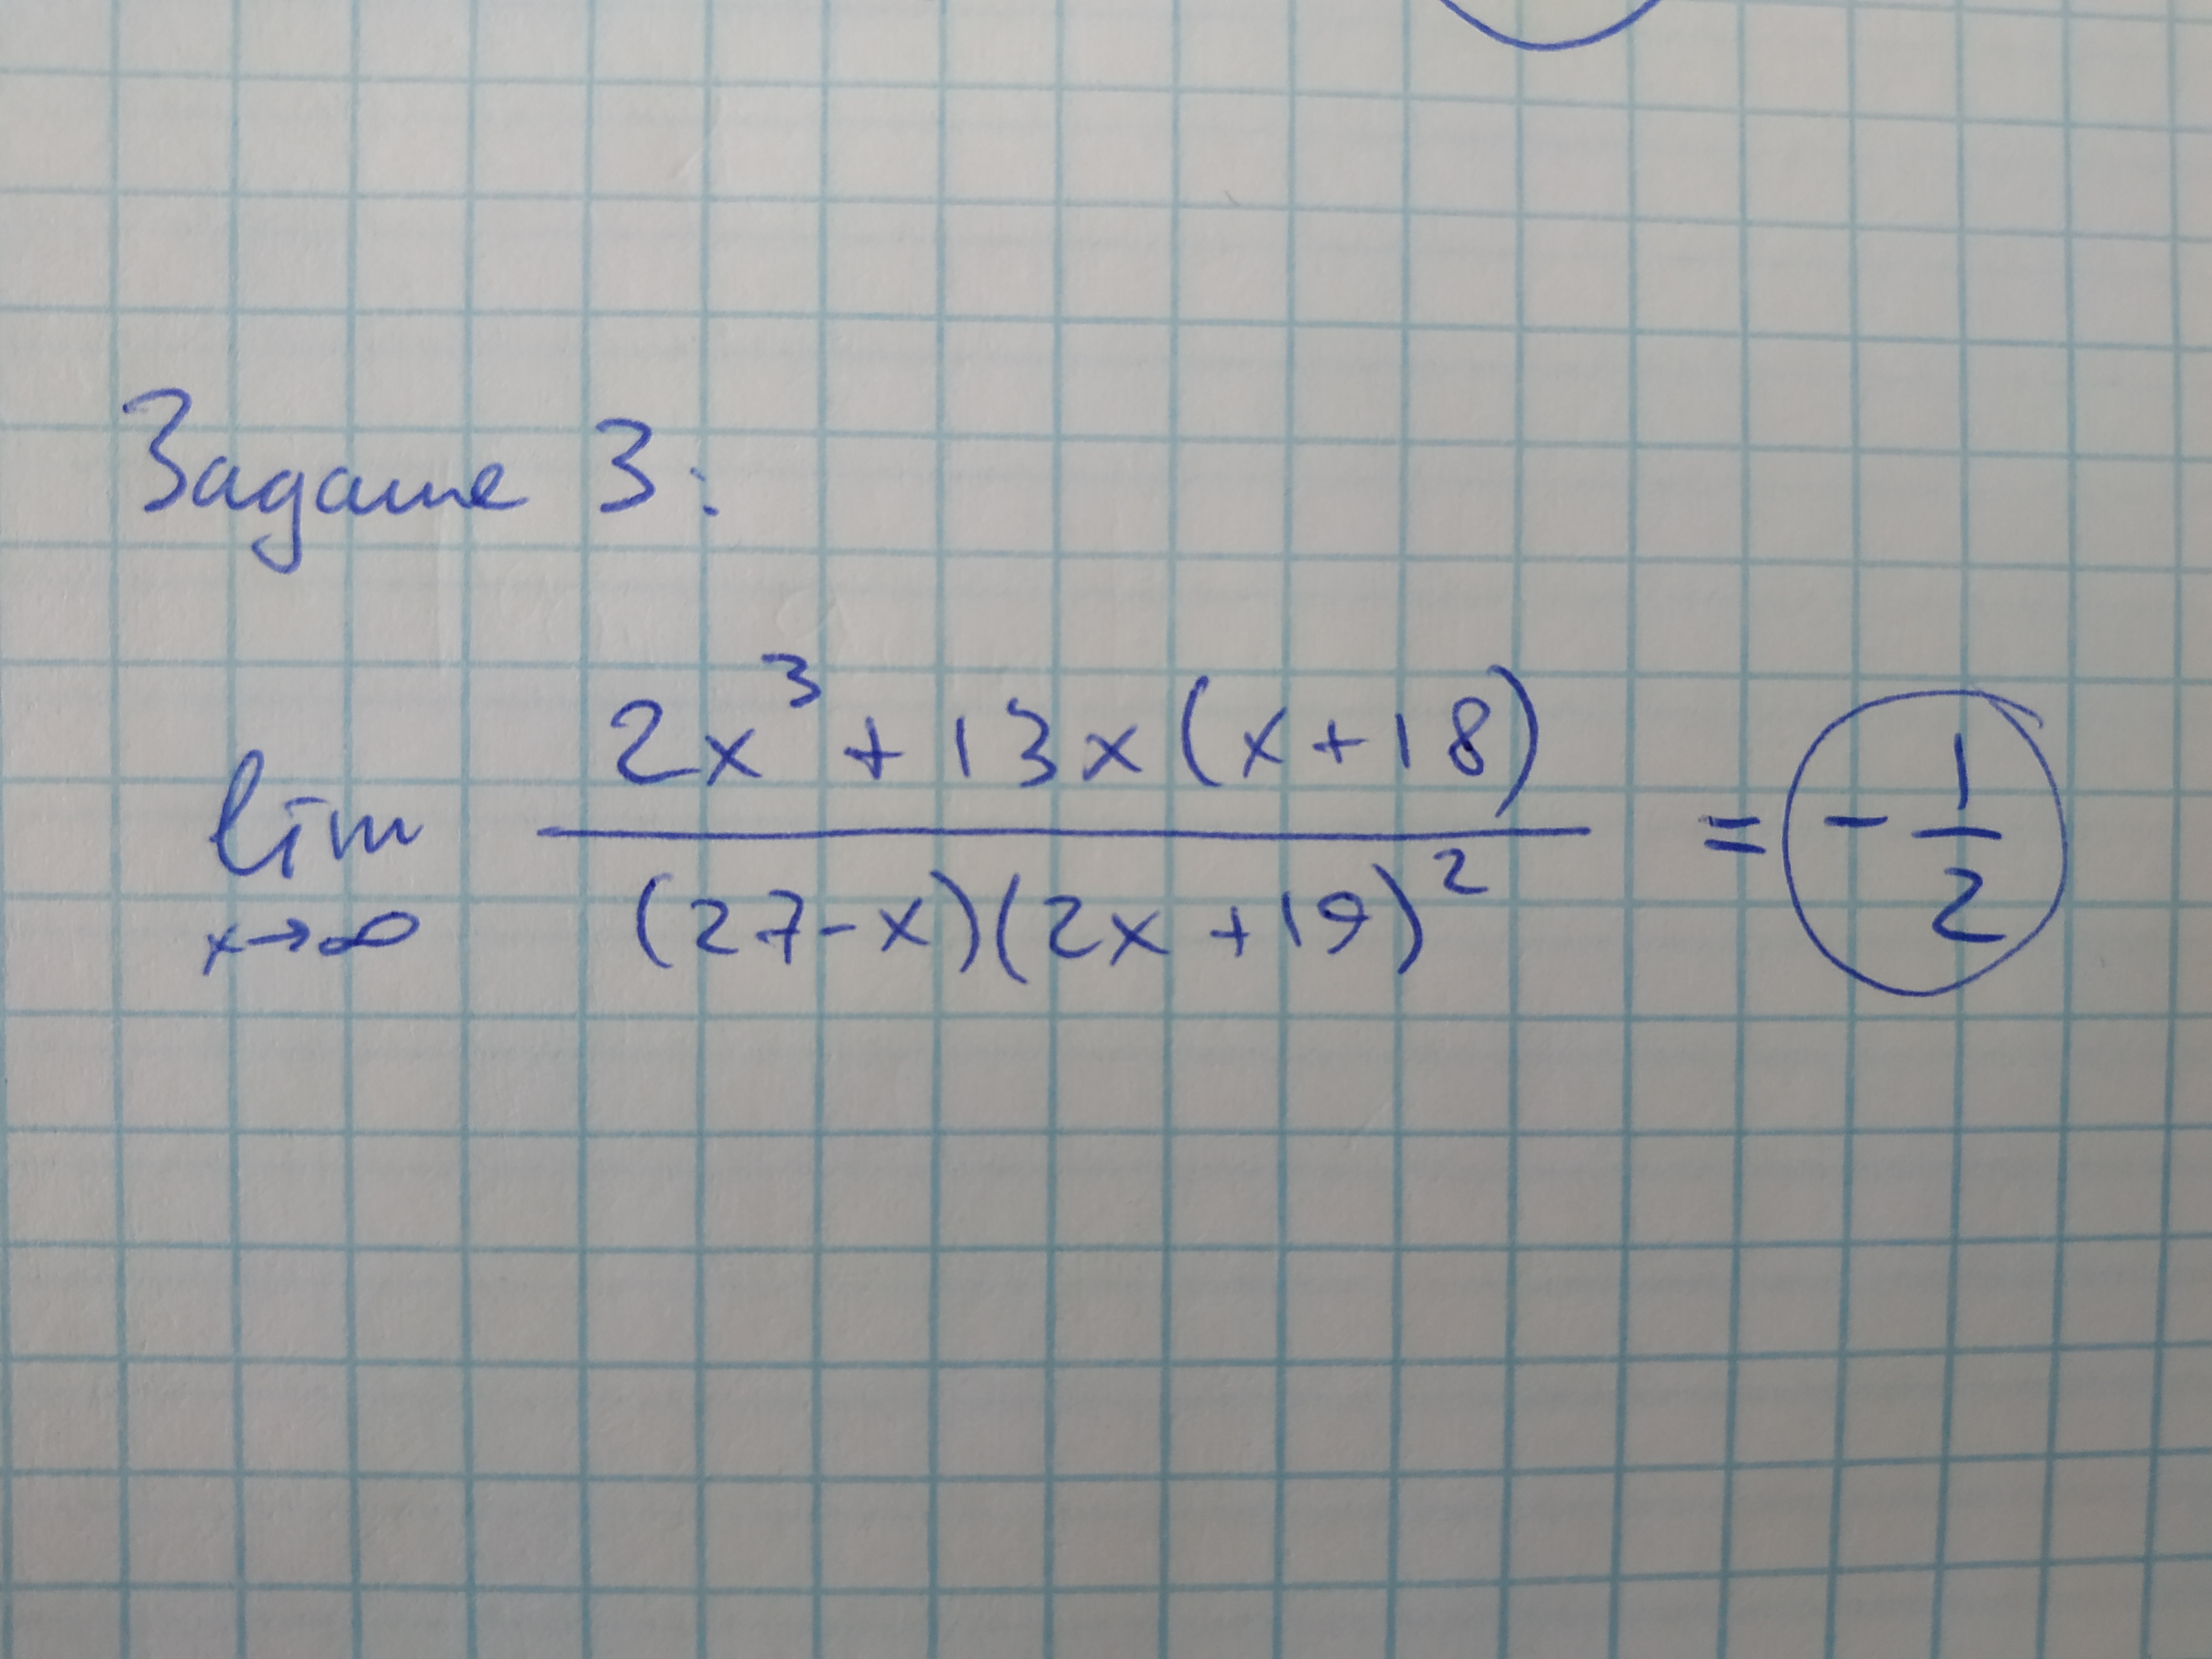 Задание 3:
lim x→∞ (2x³ + 13x(x+18)) / ((27-x)(2x+19)²) = -1/2